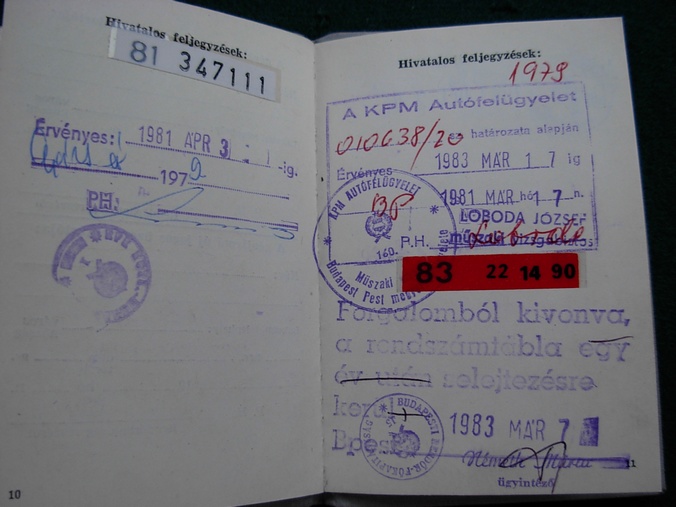 Hivatalos feljegyzések:
81 347111
Érvényes: 1981 ÁPR 3 -ig.
1979
P.H.
10
Hivatalos feljegyzések:
1979
A KPM Autófelügyelet
010638/20 sz határozata alapján
Érvényes 1983 MÁR 17 ig
BP 1981 MÁR hó 17 n.
LOBODA JÓZSEF
P.H. műszaki vizsgabiztos
KPM AUTÓFELÜGYELET
160.
Műszaki
Budapest Pest megye
83 22 14 90
Forgalomból kivonva,
a rendszámtábla egy
év után selejtezésre
kerül
Bpest 1983 MÁR 7
BUDAPESTI RENDŐR-FŐKAPITÁNYSÁG
Németh Mária
ügyintéző
11